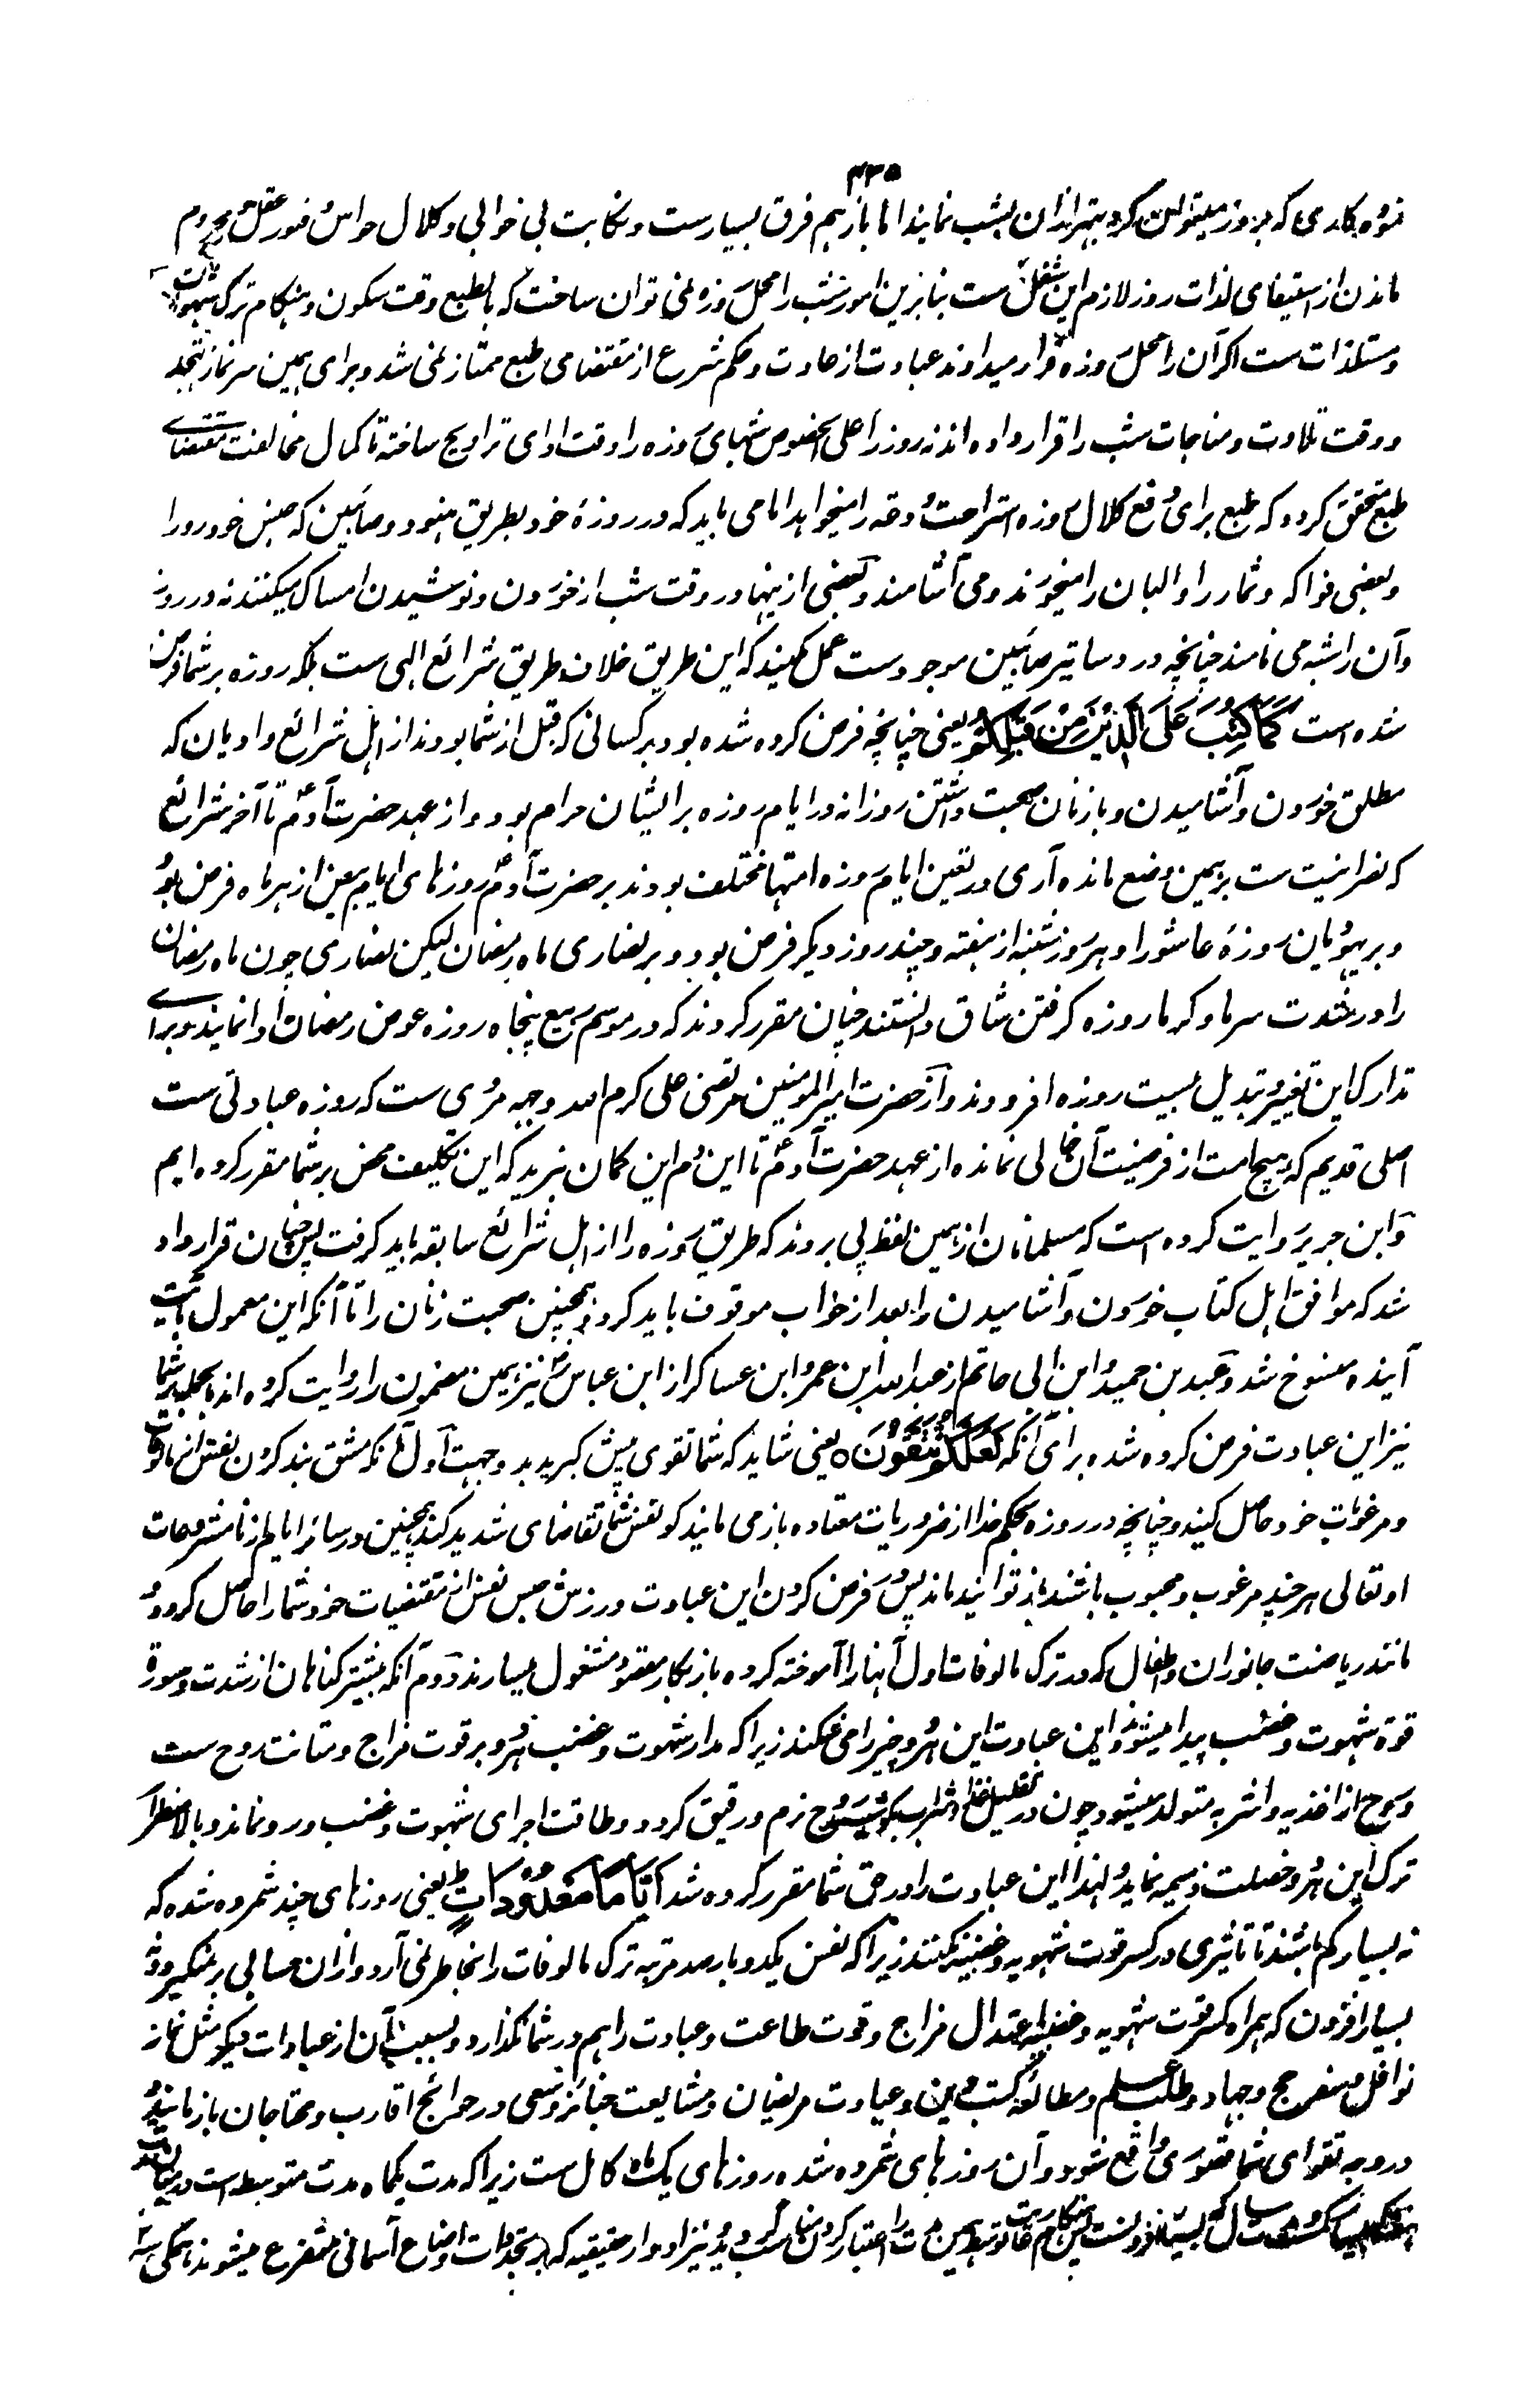 ۴۳۵
نوه کاری که بروز میتوان کرد بهتر ازان بشب نمایند اما باز هم فرق بسیارست و نکابت بی خوابی و کلال حواس و فتور عقل و محروم
ماندن از استیفای لذات روز لازم این شغل ست بنابرین امور شب را محل روزه نمی توان ساخت که بالطبع وقت سکون و هنگام ترک شهوات
و مستلذات ست اگر آن را محل روزه قرار میدادند عبادت از عادت و حکم شرع از مقتضای طبع ممتاز نمی شد و برای همین سر نماز تهجد
و وقت تلاوت و مناجات شب را قرار داده اند نه روز را علی الخصوص شبهای روزه را وقت ادای تراویح ساخته تا کمال مخالفت مقتضای
طبع متحقق گردد که طبع برای رفع کلال روزه استراحت و دعه را میخواهد اما می باید که در روزهٔ خود بطریق هنود و صابئین که جنس خود را
و بعضی فواکه و ثمار را و البان را میخورند و می آشامند و بعضی ازینها در وقت شب از خوردن و نوشیدن امساک میکنند نه در روز
و آن را شبه می نامند چنانچه در دساتیر صابئین موجودست عمل مکنید که این طریق خلاف طریق شرائع الهی ست بلکه روزه بر شما فرض
شده است كَمَا كُتِبَ عَلَى الَّذِيْنَ مِنْ قَبْلِكُمْ یعنی چنانچه فرض کرده شده بود بر کسانی که قبل از شما بودند از اهل شرائع و ادیان که
مطلق خوردن و آشامیدن و با زنان صحبت داشتن روزانه در ایام روزه بر ایشان حرام بود و از عهد حضرت آدم ع تا آخر شرائع
که نصرانیت ست بر همین وضع مانده آری در تعین ایام روزه امتها مختلف بودند بر حضرت آدم ع روزهای ایام بیض از هر ماه فرض بود
و بر یهودیان روزهٔ عاشورا و هر روز شنبه از هفته و چند روز دیگر فرض بود و بر نصاری ماه رمضان لیکن نصاری چون ماه رمضان
را در شدت سرما و گرما روزه گرفتن شاق دانستند چنان مقرر کردند که در موسم ربیع پنجاه روزه عوض رمضان ادا نمایند و برای
تدارک این تغییر و تبدیل بست روزه افزودند و از حضرت امیرالمومنین مرتضی علی کرم الله وجهه مروی ست که روزه عبادتی ست
اصلی قدیم که هیچ امت از فرضیت آن خالی نمانده از عهد حضرت آدم ع تا این دم این گمان نبرید که این تکلیف محض بر شما مقرر کرده ایم
و ابن جریر روایت کرده است که مسلمانان از همین لفظ پی بردند که طریق روزه را از اهل شرائع سابقه باید گرفت پس چنان قرار داد
شد که موافق اهل کتاب خوردن و آشامیدن را بعد از خواب موقوف باید کرد و همچنین صحبت زنان را تا آنکه این معمول بآیت
آینده منسوخ شد و عبد بن حمید و ابن ابی حاتم از عبدالله ابن عمر و ابن عساکر از ابن عباس رض نیز همین مضمون را روایت کرده اند بالجمله بر شما
نیز این عبادت فرض کرده شده برای آنکه لَعَلَّكُمْ تَتَّقُوْنَ یعنی شاید که شما تقوی پیش گیرید بدو جهت اول آنکه مشق بند کردن نفس از مالوفات
و مرغوبات خود حاصل کنید و چنانچه در روزه بحکم خدا از ضروریات معتاده باز می مانید گو نفس شما تقاضای شدید کند همچنین در سائر ایام از نامشروعات
او تعالی هر چند مرغوب و محبوب باشند باز توانید ماند پس فرض کردن این عبادت ورزش حبس نفس از مقتضیات خود شما را حاصل گردد
مانند ریاضت جانوران و اطفال که در ترک مالوفات اول آنها را آموخته کرده باز بکار مقصود مشغول میسازند دوم آنکه بیشتر گناهان از شدت و سورت
قوة شهوت و غضب پیدا میشود و این عبادت این هر دو چیز را می شکند زیرا که مدار شهوت و غضب هر دو بر قوت مزاج و متانت روح ست
و روح از اغذیه و اشربه متولد میشود چون در تقلیل غذا و شراب کوشید روح نرم و رقیق گردد و طاقت اجرای شهوت و غضب درو نماند و بالاضطرار
ترک این هر دو خصلت ذمیمه نماید و لهذا این عبادت را در حق شما مقرر کرده شد اَيَّامًا مَّعْدُوْدَاتٍ ط یعنی روزهای چند شمرده شده که
نه بسیار کم باشند تا تاثیری در کسر قوت شهویه و غضبیه نکنند زیرا که نفس یکدو بار صد مرتبه ترک مالوفات را بخاطر نمی آرد و ازان حسابی بر نمیگیرد و نه
بسیار افزون که همراه کسر قوت شهویه و غضبیه اعتدال مزاج و قوت طاعت و عبادت را هم در شما نگذارد و بسبب آن از عبادات دیگر مثل نماز
نوافل و سفر حج و جهاد و طلب علم و مطالعه کتب دین و عیادت مریضان و مشایعت جنائز و سعی در حوائج اقارب و محتاجان باز مانید و
در وجه تقوای شما قصوری واقع شود و آن روزهای شمرده شده روزهای یک ماه کامل ست زیرا که مدت یکماه مدت متوسطه است در میان
را اعتبار کردن مناسب دید و نیز ادوار حقیقیه که بر تجددات اوضاع آسمانی متفرع میشوند همگی سه